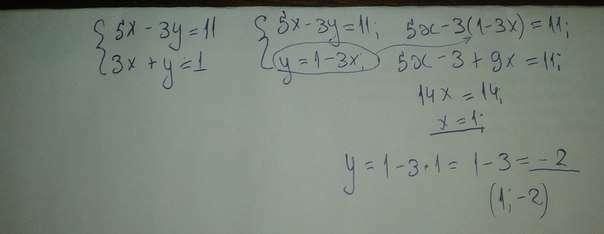 5x - 3y = 11
3x + y = 1
5x - 3y = 11;
y = 1 - 3x;
5x - 3(1 - 3x) = 11;
5x - 3 + 9x = 11;
14x = 14;
x = 1;
y = 1 - 3 · 1 = 1 - 3 = -2
(1; -2)